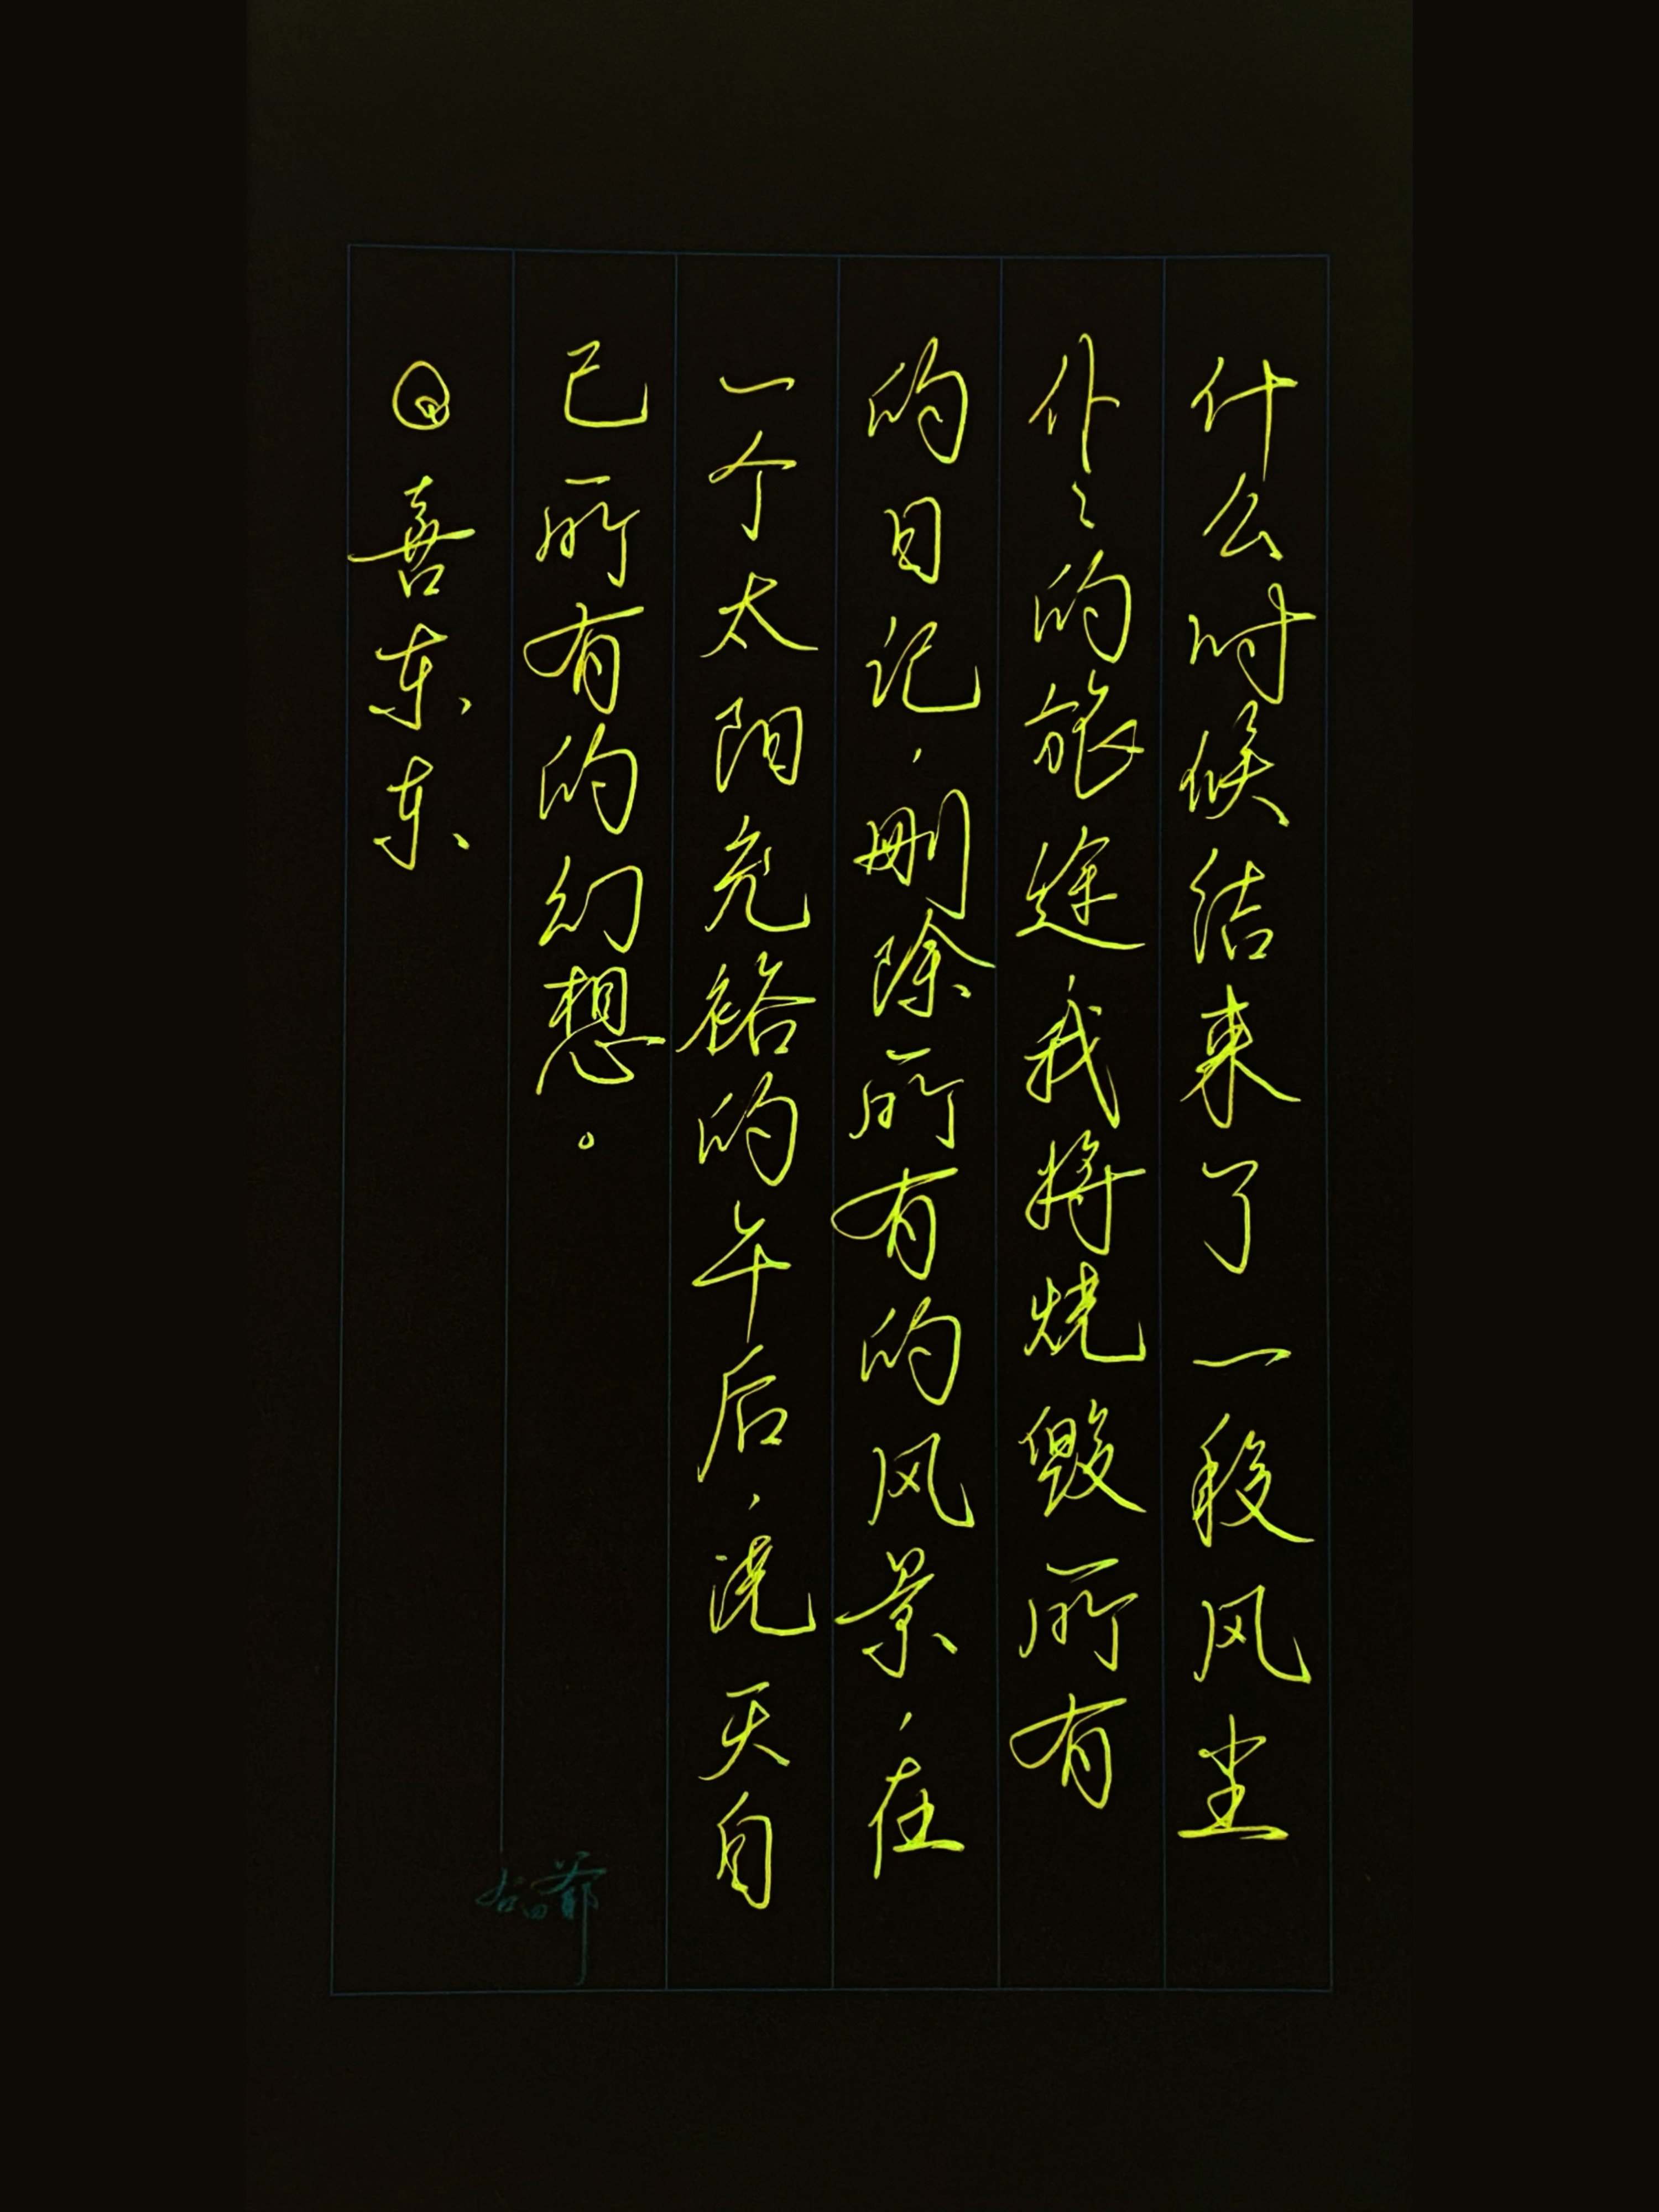 什么时候结束了一段风尘
仆々的旅途，我将烧毁所有
的日记，删除所有的风景，在
一个太阳充裕的午后，浇灭自
己所有的幻想。
@喜东东